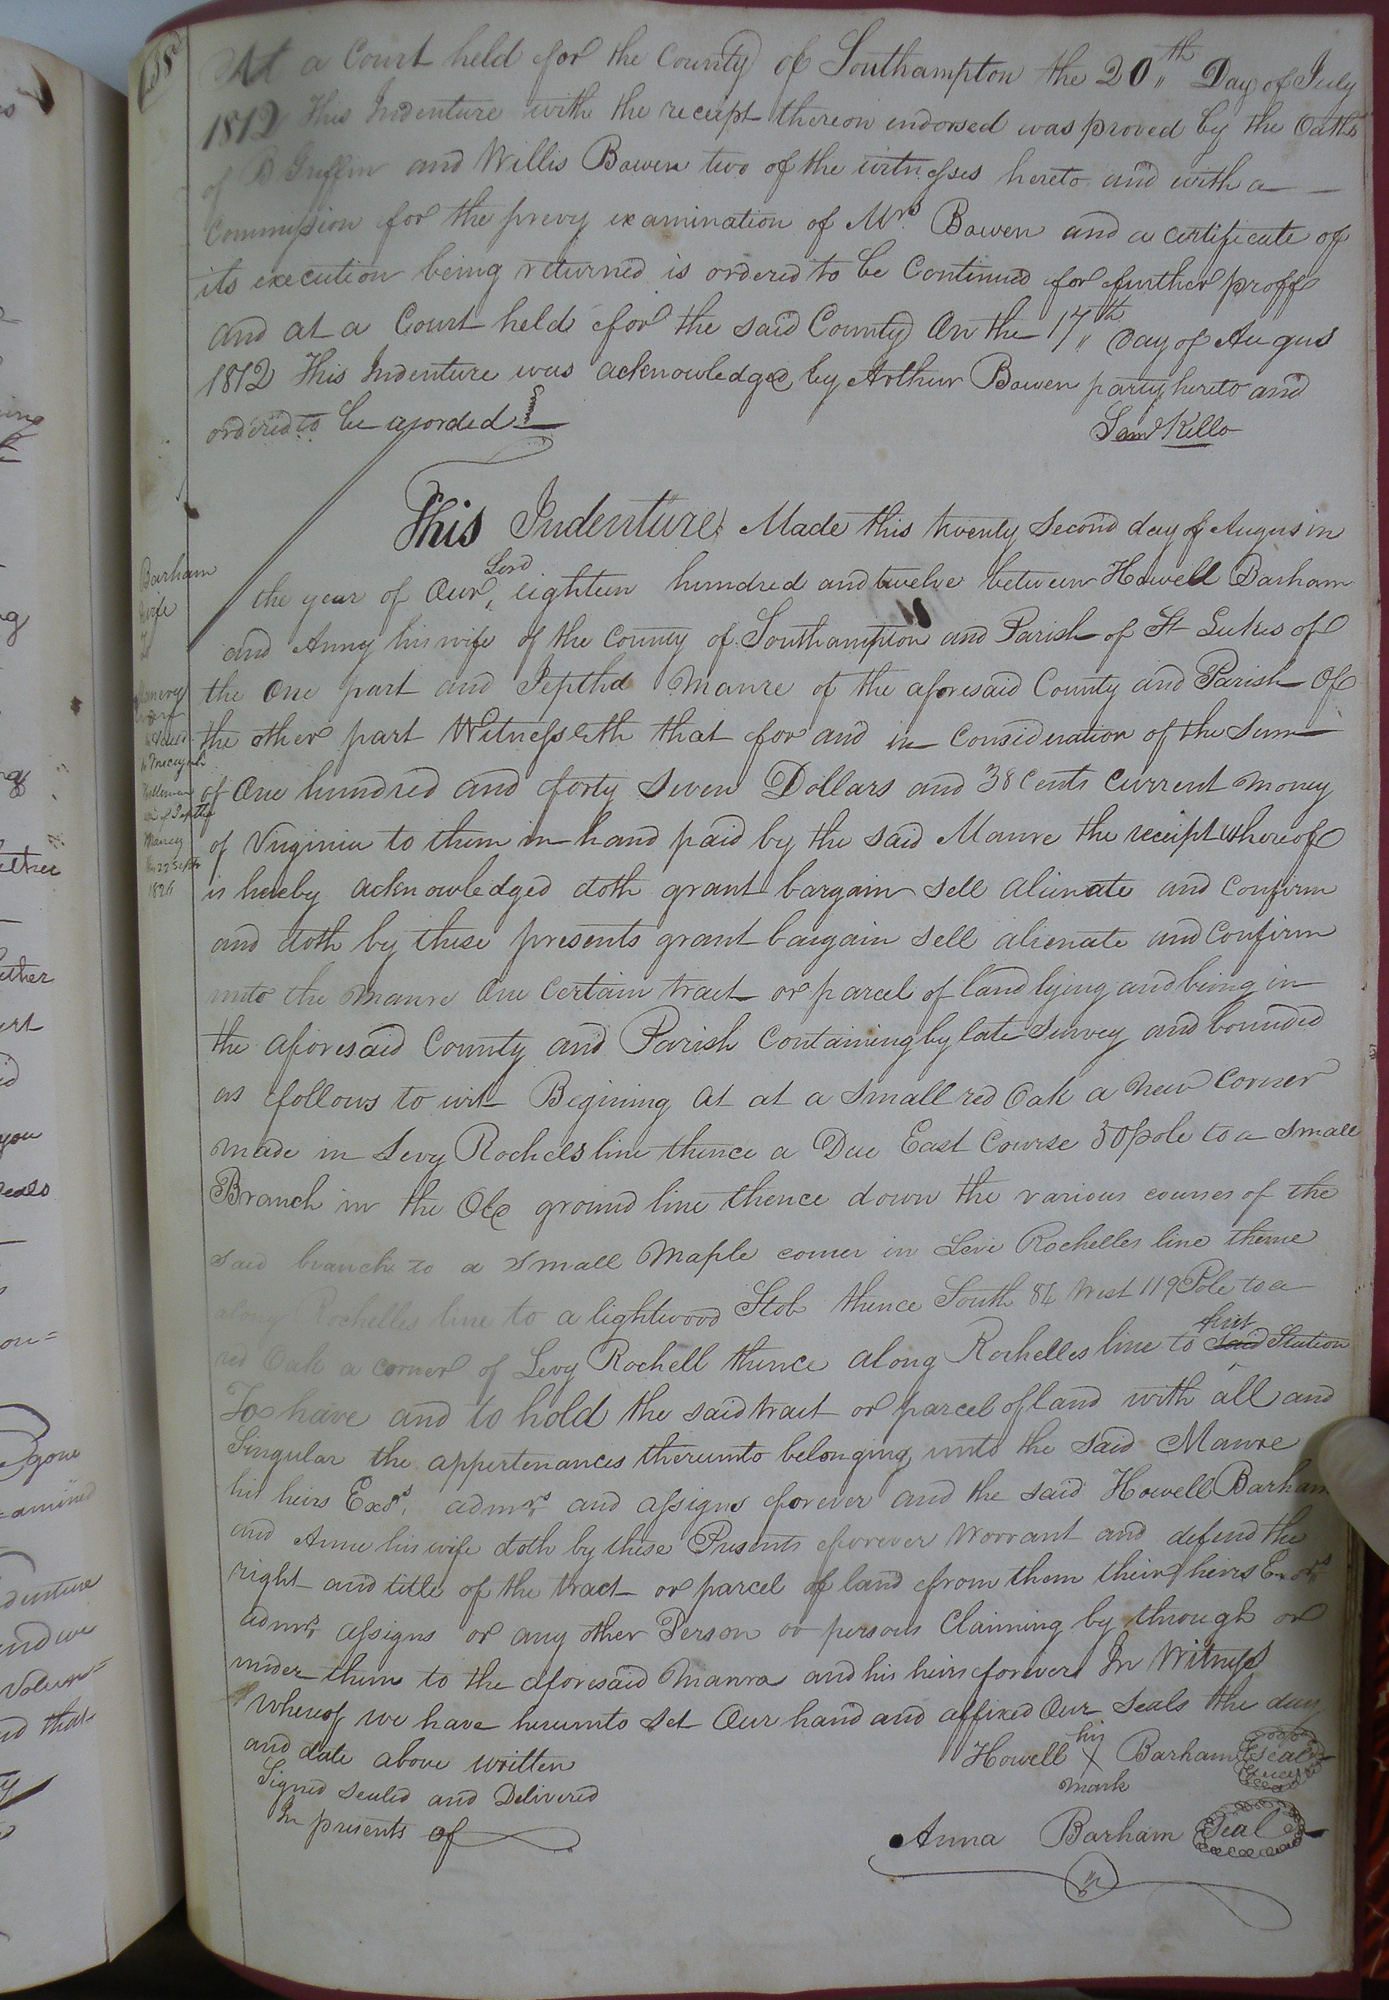 At a Court held for the County of Southampton the 20th Day of July
1812 This Indenture with the receipt thereon endorsed was proved by the Oaths
of B Griffin and Willis Bowen two of the witnesses hereto and with a
Commission for the privy examination of Mrs Bowen and a certificate of
its execution being returned is ordered to be Continued for further proff
and at a Court held for the said County On the 17th Day of Augus
1812 This Indenture was acknowledged by Arthur Bowen party hereto and
ordered to be
Saml Kello
This Indenture Made this twenty Second day of Augus in
the year of Our Lord eighteen hundred and twelve between Howell Barham
and Anny his wife of the County of Southampton and Parish of St Lukes of
the One part and Jeptha Manre of the aforesaid County and Parish Of
the other part Witnesseth that for and in Consideration of the Sum
of One hundred and forty Seven Dollars and 38 Cents Current Money
of Virginia to them in hand paid by the said Manre the receipt whereof
is hereby acknowledged doth grant bargain Sell alienate and Confirm
and doth by these presents grant bargain Sell alienate and Confirm
unto the Manre One Certain tract or parcel of land lying and being in
the aforesaid County and Parish Containing by late Survey and bounded
as follows to wit Begining at at a Small red Oak a new Corner
made in Levy Rochels line thence a Due East Course 30 pole to a Small
Branch in the Old ground line thence down the various courses of the
said branch to a Small Maple corner in Levi Rochelles line thence
along Rochelles line to a lightwood Stob thence South 86 West 119 Pole to a
red Oak a corner of Levy Rochell thence along Rochelles line to said first Station
To have and to hold the said tract or parcel of land with all and
Singular the appertenances thereunto belonging unto the said Manre
his heirs Exors. admrs and assigns forever and the said Howell Barham
and Anne his wife doth by these Presents forever Warrant and defend the
right and title of the tract or parcel of land from them their heirs Exors
admrs assigns or any other Person or persons Claiming by through or
under them to the aforesaid Manra and his heirs forever In Witness
Whereof we have hereunto Set Our hand and affixed Our Seals the day
and date above written
Howell his X mark Barham Seal
Signed sealed and Delivered
In presents of
Anna Barham Seal
Barham
wife
To
Manery
Deed
Jeptha
Maney
22 Sept